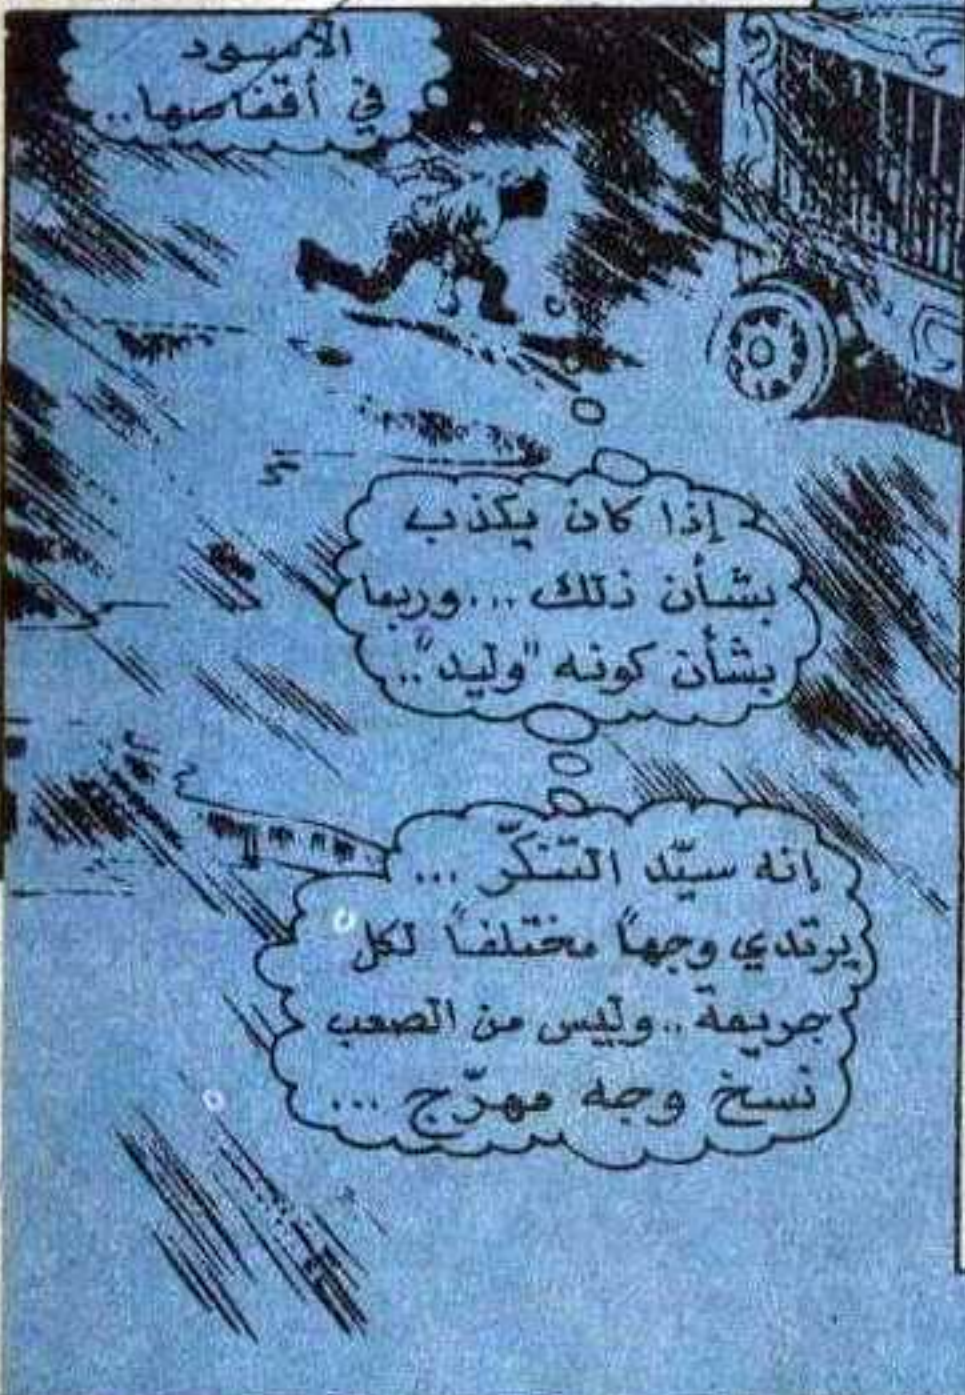 الأسود
في أقفاصها..
إذا كان يكذب
بشأن ذلك...وربما
بشأن كونه "وليد"..
إنه سيّد التنكّر ...
يرتدي وجهاً مختلفاً لكل
جريمة..وليس من الصعب
نسخ وجه مهرّج ...